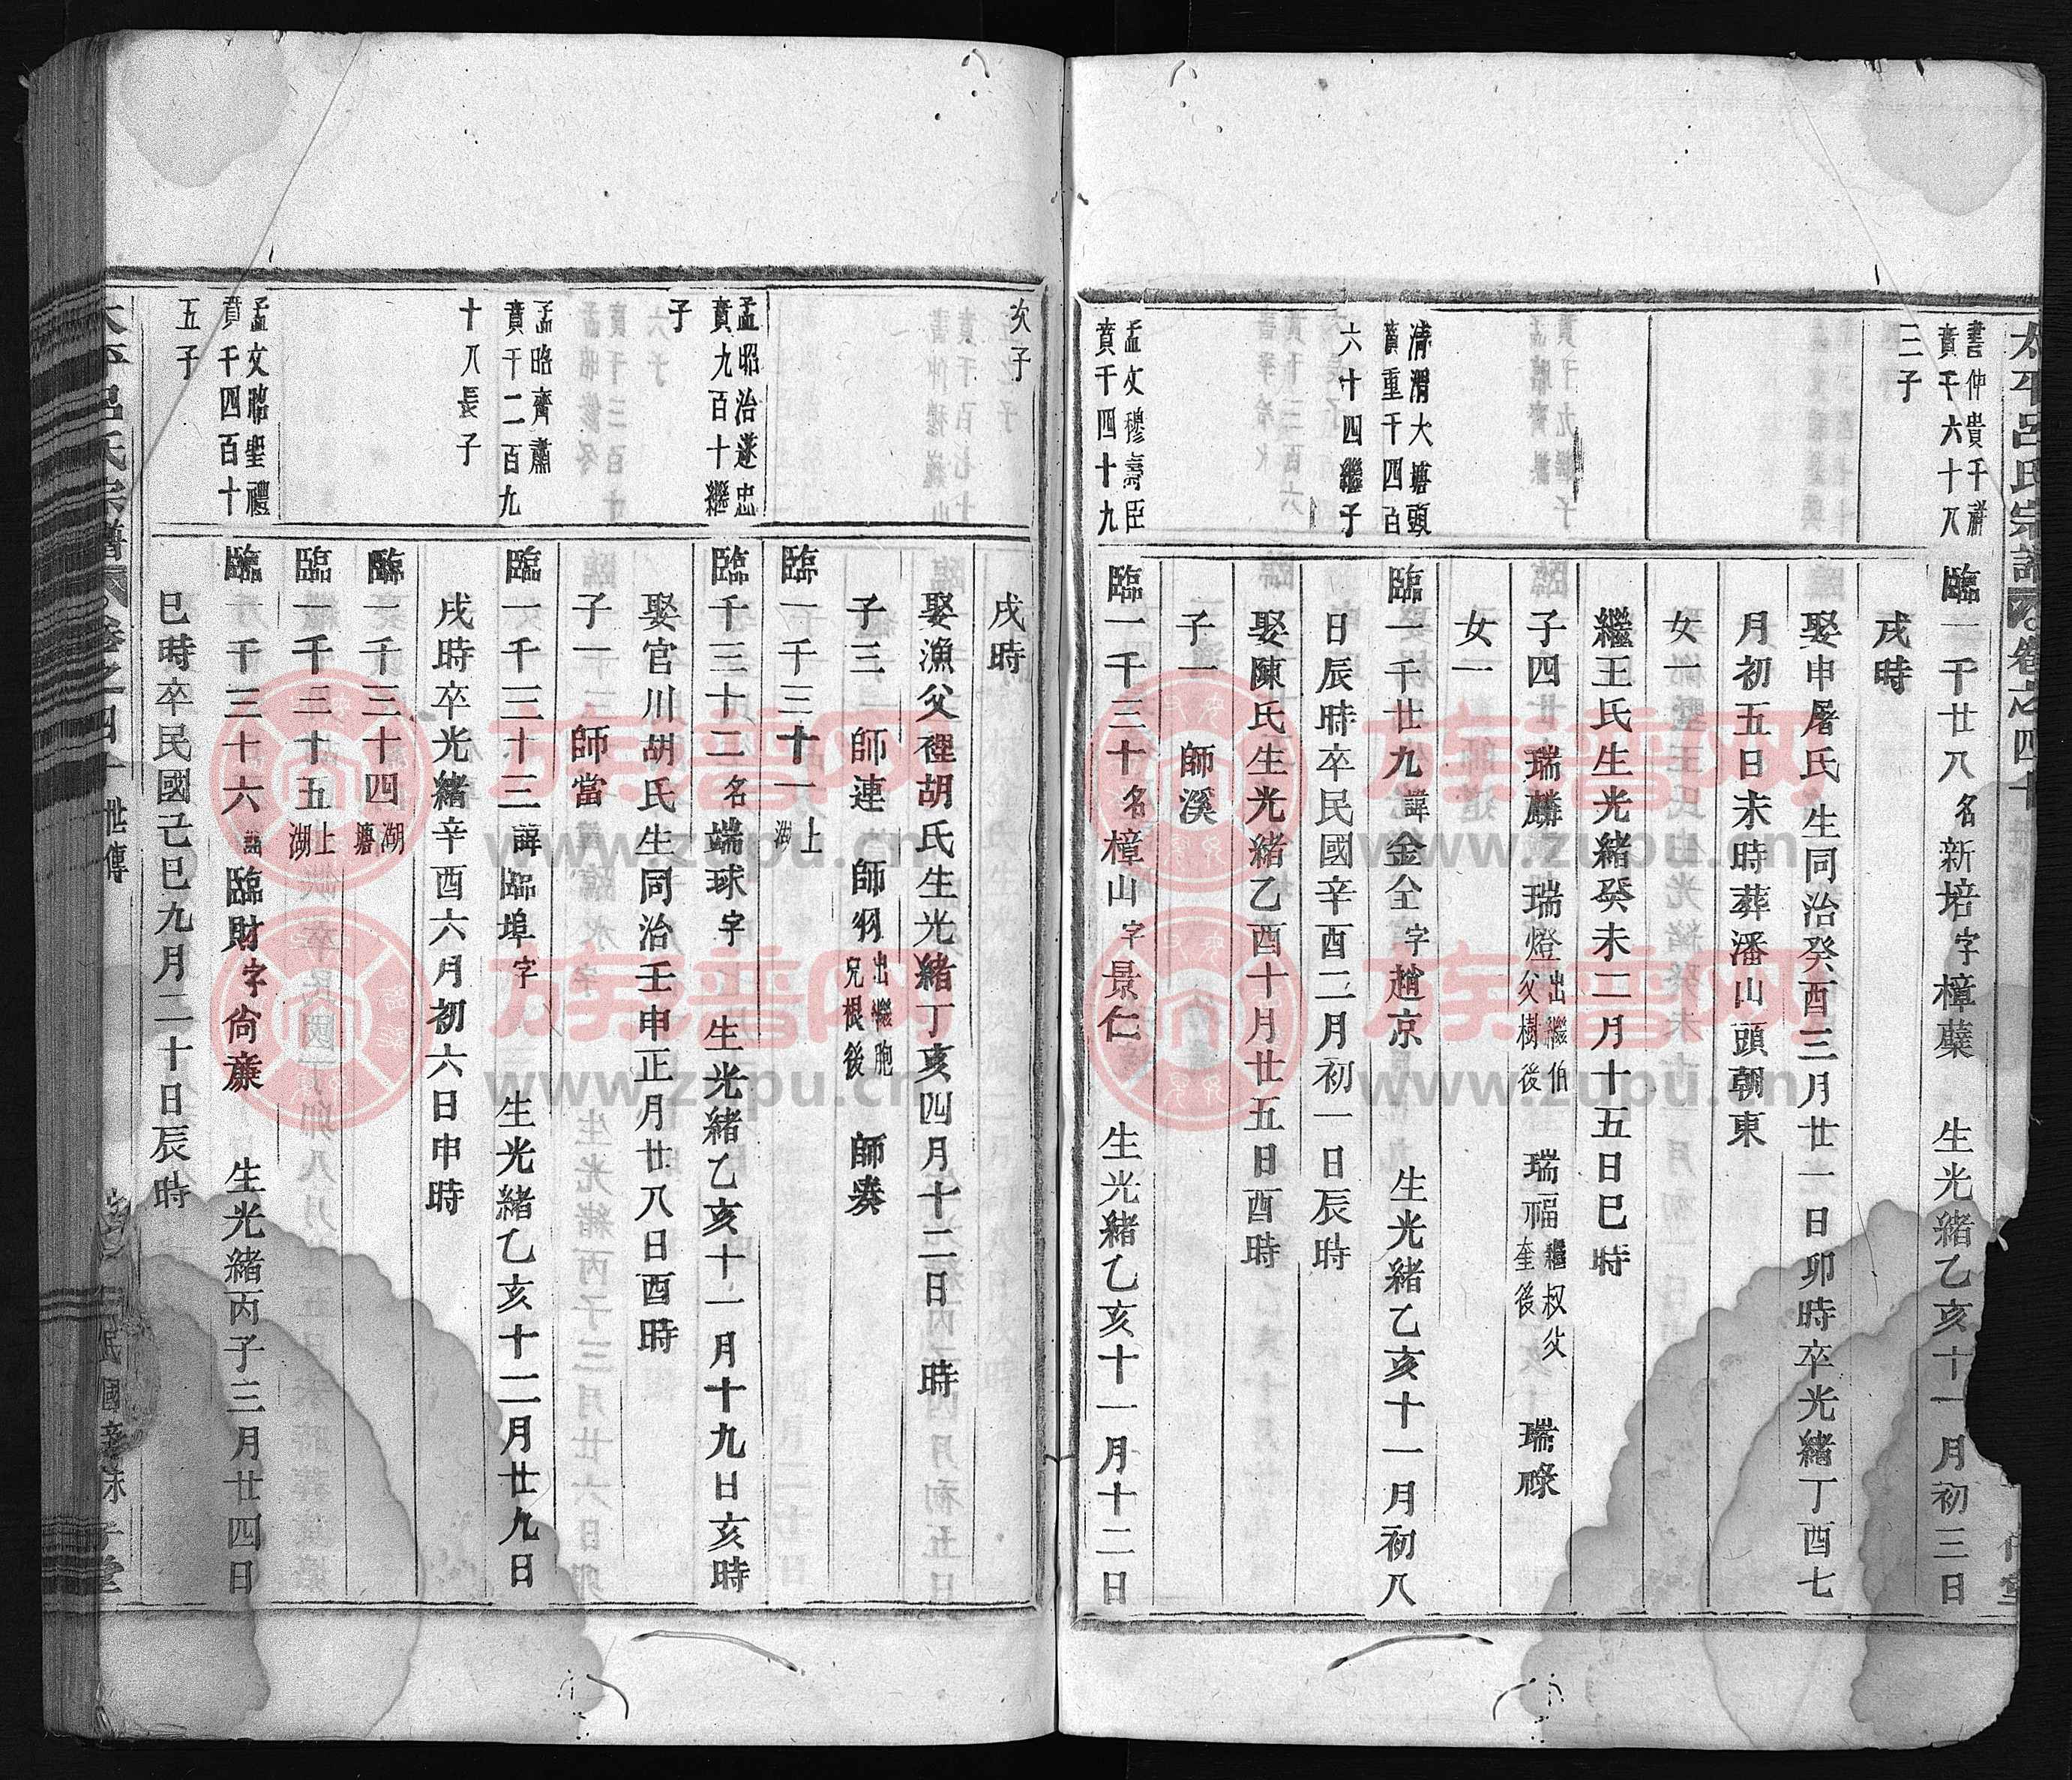 太平呂氏宗譜 卷之四十 世傳
書仲貴千禄
賁千六十八
三子
臨一千廿八名新培字樟蘗 生光緒乙亥十一月初三日
戌時
娶申屠氏生同治癸酉三月廿一日卯時卒光緒丁酉七
月初五日未時葬潘山頭朝東
女一
繼王氏生光緒癸未二月十五日巳時
子四 瑞麟 瑞燈出繼伯父樹後 瑞福繼叔父奎後 瑞祿
女一
清渭大塘頭
賁重千四百
六十四繼子
臨一千廿九諱金全字趙京 生光緒乙亥十一月初八
日辰時卒民國辛酉二月初一日辰時
娶陳氏生光緒乙酉十月廿五日酉時
子一 師溪
孟文穆壽臣
賁千四十九
臨一千三十名樟山字景仁 生光緒乙亥十一月十二日
次子
戌時
娶漁父裡胡氏生光緒丁亥四月十二日 時
子三 師連 師羽出繼胞兄根後 師奏
臨一千三十一上湖
孟昭治遂忠
賁九百十繼
子
臨千三十二名端球字 生光緒乙亥十一月十九日亥時
娶官川胡氏生同治壬申正月廿八日酉時
子一 師當
孟昭齊肅
賁千二百九
十八長子
臨一千三十三諱臨埠字 生光緒乙亥十二月廿九日
戌時卒光緒辛酉六月初六日申時
臨一千三十四湖塘
臨一千三十五上湖
孟文昭聖禮
賁千四百十
五子
臨一千三十六諱臨財字尙蔴 生光緒丙子三月廿四日
巳時卒民國己巳九月二十日辰時
太平呂氏宗譜 卷之四十 世傳
族譜网
www.zupu.cn
族譜网
www.zupu.cn
族譜网
www.zupu.cn
族譜网
www.zupu.cn